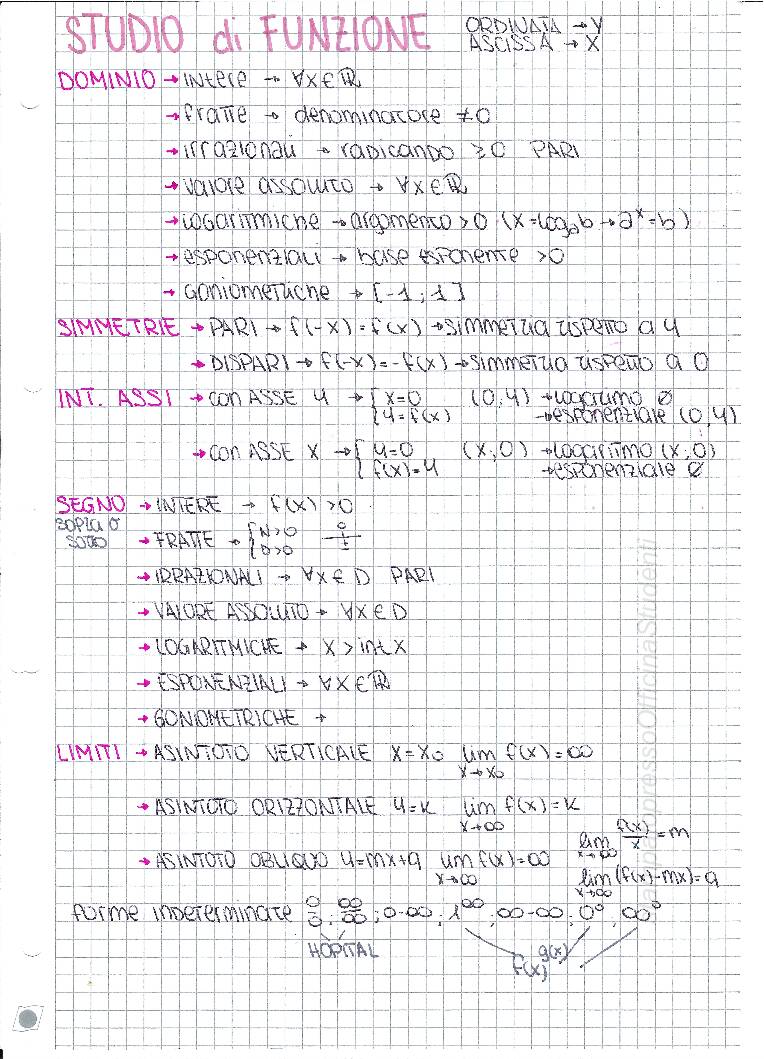 STUDIO di FUNZIONE
ORDINATA → Y
ASCISSA → X
DOMINIO → intere → ∀x∈ℝ
→ fratte → denominatore ≠0
→ irrazionali → radicando ≥0 PARI
→ valore assoluto → ∀x∈ℝ
→ logaritmiche → argomento >0 (x=logₐb → aˣ=b)
→ esponenziali → base esponente >0
→ Goniometriche → [-1;1]
SIMMETRIE → PARI → f(-x)=f(x) → simmetria rispetto a y
→ DISPARI → f(-x)=-f(x) → simmetria rispetto a 0
INT. ASSI → con ASSE y → { x=0 (0,y) → logaritmo ∅
{ y=f(x) → esponenziale (0,y)
→ con ASSE x → { y=0 (x,0) → logaritmo (x,0)
{ f(x)=y → esponenziale ∅
SEGNO → INTERE → f(x)>0
SOPRA O
SOTTO
→ FRATTE → { N>0
{ D>0
→ IRRAZIONALI → ∀x∈D PARI
→ VALORE ASSOLUTO → ∀x∈D
→ LOGARITMICHE → x > int x
→ ESPONENZIALI → ∀x∈ℝ
→ GONIOMETRICHE →
LIMITI → ASINTOTO VERTICALE x=x₀ lim f(x)=∞
x→x₀
→ ASINTOTO ORIZZONTALE y=k lim f(x)=k
x→∞
→ ASINTOTO OBLIQUO y=mx+q lim f(x)=∞
x→∞
lim f(x)/x = m
x→∞
lim (f(x)-mx)=q
x→∞
forme indeterminate 0/0; ∞/∞; 0·∞; 1^∞; ∞-∞; 0⁰; ∞⁰
HOPITAL
f(x)^g(x)